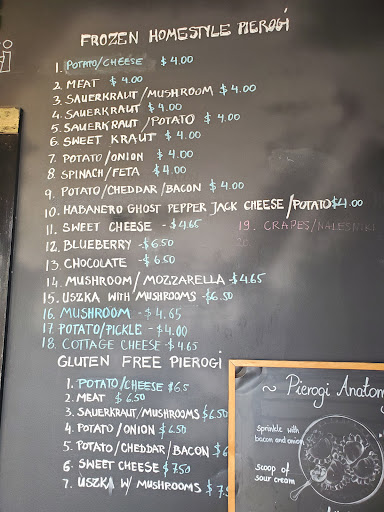 FROZEN HOMESTYLE PIEROGI
1. POTATO/CHEESE $4.00
2. MEAT $4.00
3. SAUERKRAUT/MUSHROOM $4.00
4. SAUERKRAUT $4.00
5. SAUERKRAUT/POTATO $4.00
6. SWEET KRAUT $4.00
7. POTATO/ONION $4.00
8. SPINACH/FETA $4.00
9. POTATO/CHEDDAR/BACON $4.00
10. HABANERO GHOST PEPPER JACK CHEESE/POTATO $4.00
11. SWEET CHEESE - $4.65
19. CRAPES/NALESNIKI
12. BLUEBERRY - $6.50
20.
13. CHOCOLATE - $6.50
14. MUSHROOM/MOZZARELLA $4.65
15. USZKA WITH MUSHROOMS - $6.50
16. MUSHROOM - $4.65
17. POTATO/PICKLE - $4.00
18. COTTAGE CHEESE - $4.65
GLUTEN FREE PIEROGI
1. POTATO/CHEESE $6.5
2. MEAT $6.50
3. SAUERKRAUT/MUSHROOMS $6.50
4. POTATO/ONION $6.50
5. POTATO/CHEDDAR/BACON $6
6. SWEET CHEESE $7.50
7. USZKA W/ MUSHROOMS $7.5
~ Pierogi Anatom
sprinkle with
bacon and onion
scoop of
sour cream